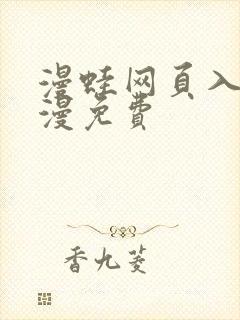 漫蛙网页入
漫免费
香九菱